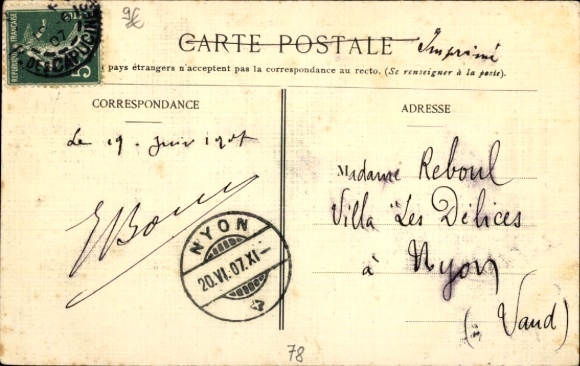 9€
REPUBLIQUE FRANÇAISE
5
07
DES CAPUCINES
CARTE POSTALE Imprimé
pays étrangers n'acceptent pas la correspondance au recto. (Se renseigner à la poste).
CORRESPONDANCE
Le 19 Juin 1907
NYON
20.VI.07.XI—
ADRESSE
Madame Reboul
Villa "Les Délices
à Nyon
(Vaud)
78